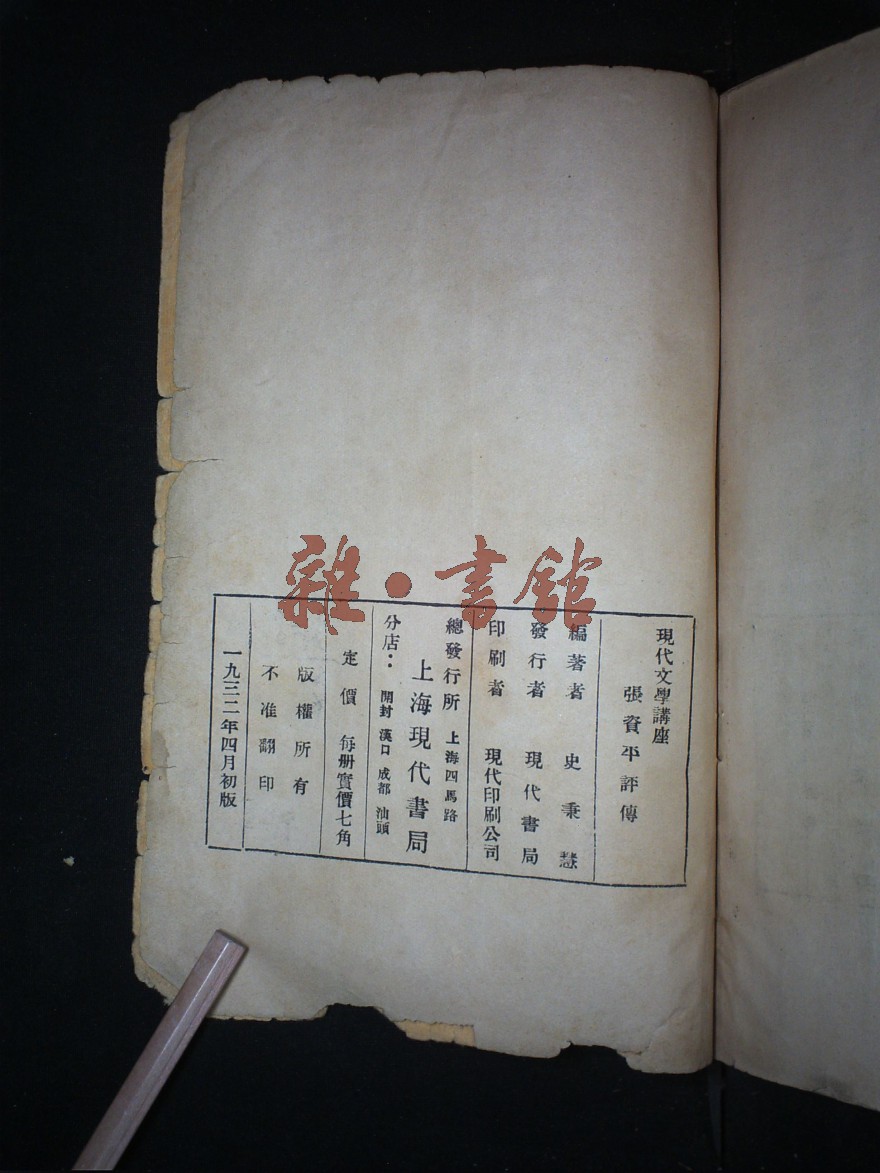 雜·書館
現代文學講座
張資平評傳
編著者 史秉慧
發行者 現代書局
印刷者 現代印刷公司
總發行所 上海四馬路
上海現代書局
分店： 開封 漢口 成都 汕頭
定價 每册實價七角
版權所有
不准翻印
一九三二年四月初版